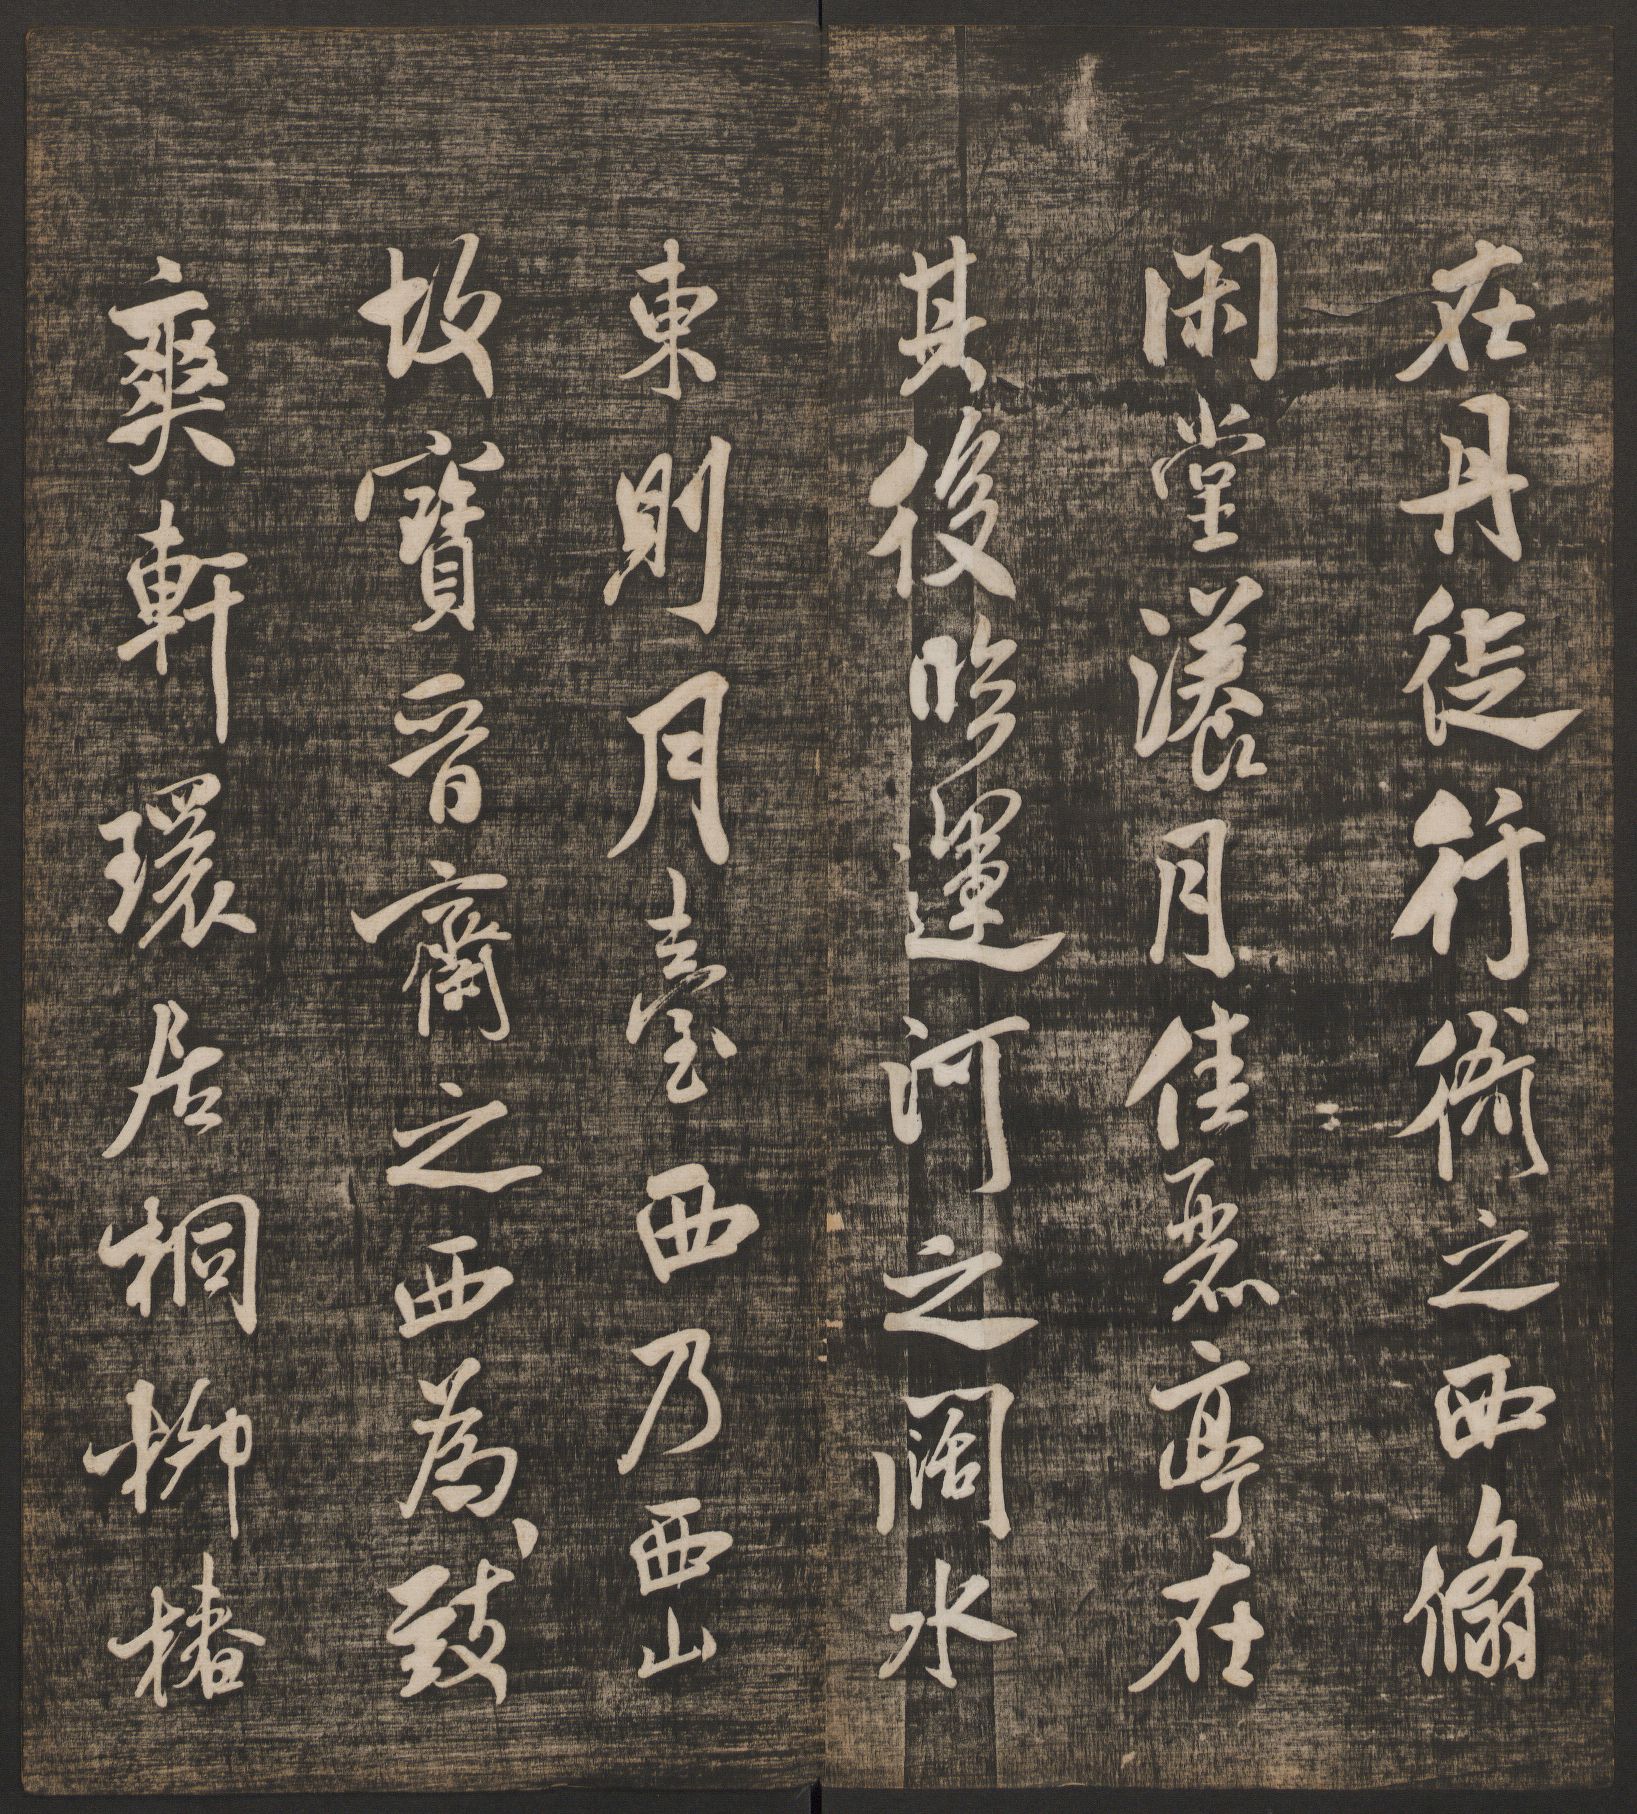 在丹徒行衙之西翛
閑堂漾月佳麗亭在
其後臨運河之闊水
東則月臺西乃西山
故寶晉齋之西為致
爽軒環居桐柳椿